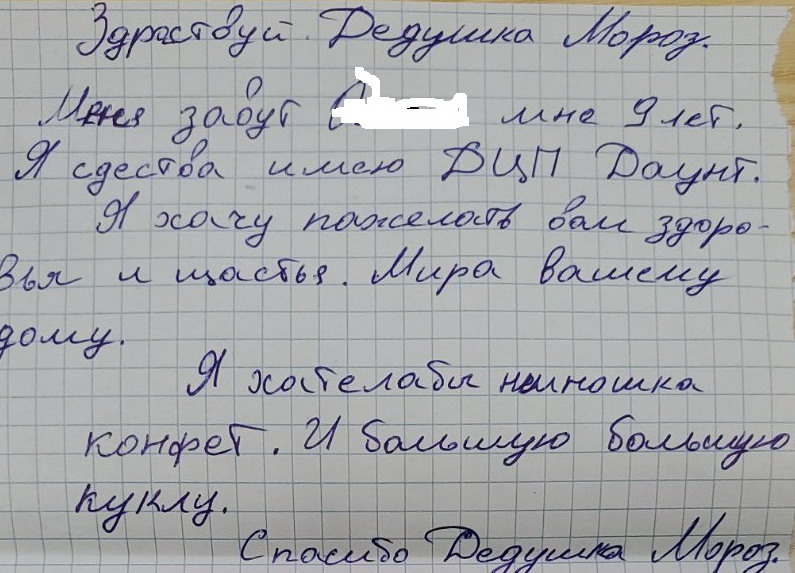 Здраствуй. Дедушка Мороз.
Меня завут мне 9 лет.
Я сдества имею ДЦП Даунт.
Я хачу пажелать вам здоро-
вья и щастья. Мира вашему
дому.
Я хателабы нимношка
конфет. И большую большую
куклу.
Спасибо Дедушка Мороз.